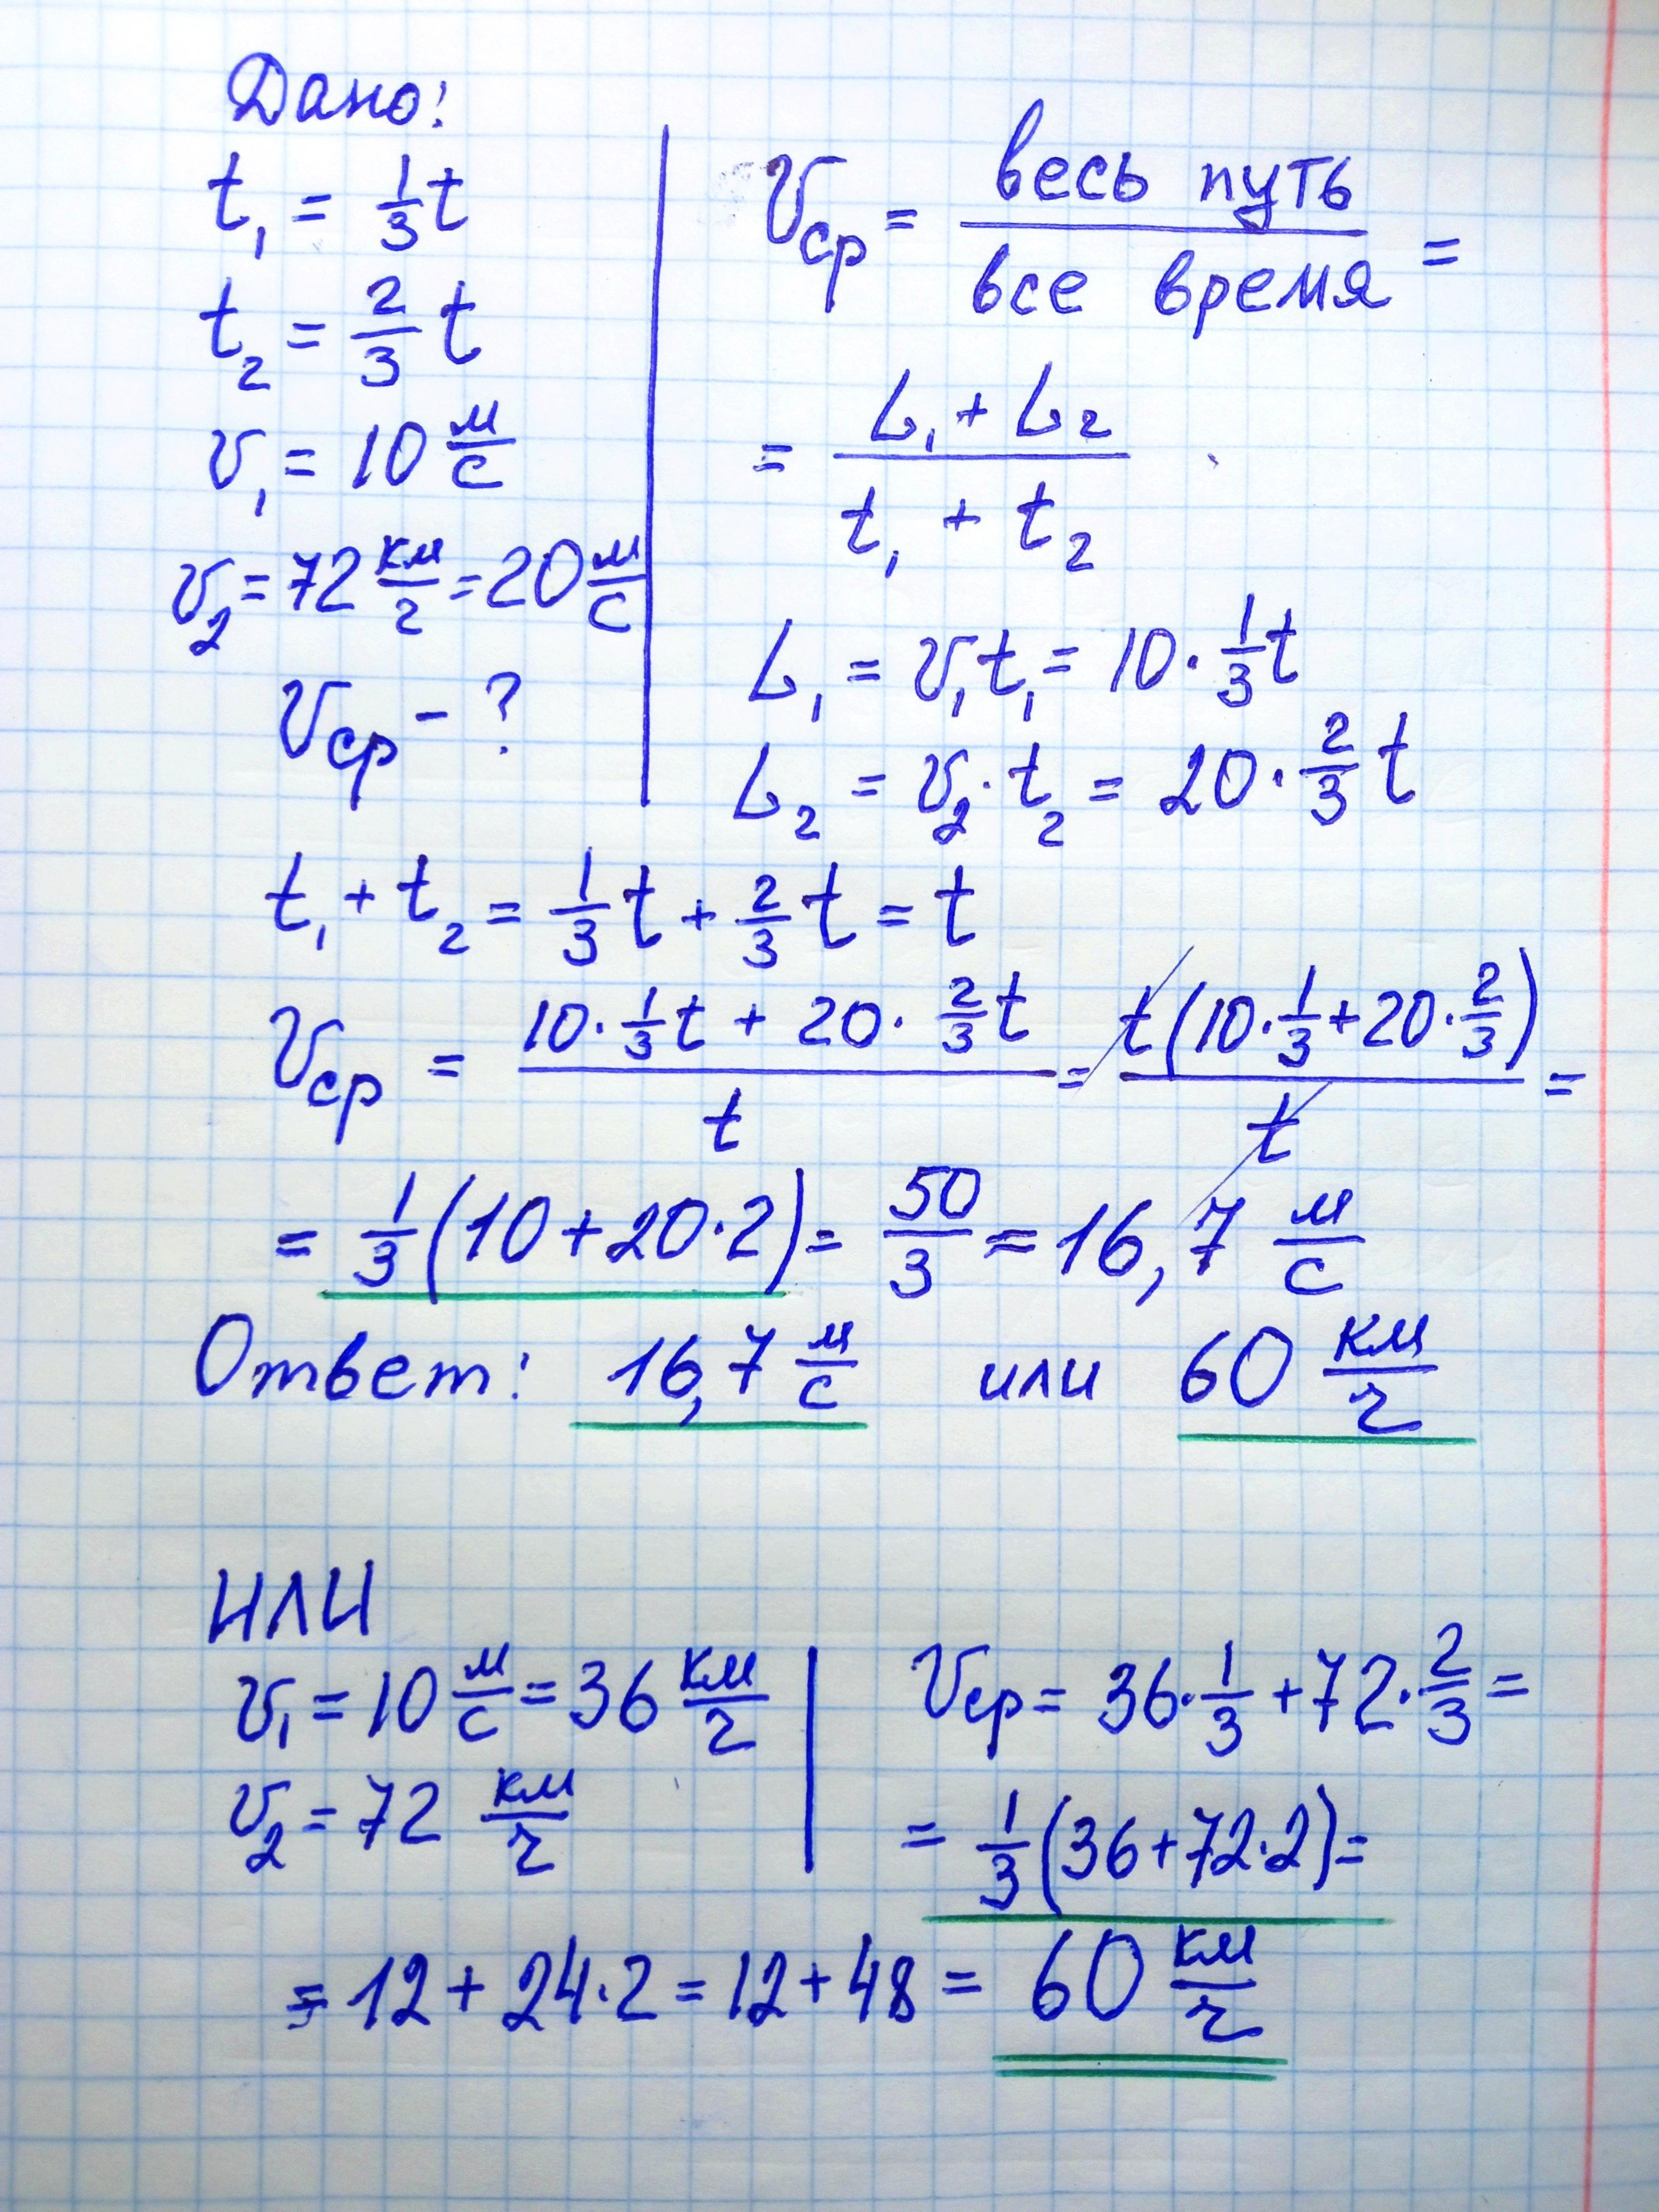 Дано:
t₁ = 1/3 t
t₂ = 2/3 t
v₁ = 10 м/с
v₂ = 72 км/г = 20 м/с
vср - ?
vср = весь путь / все время =
= (L₁ + L₂) / (t₁ + t₂)
L₁ = v₁t₁ = 10 · 1/3 t
L₂ = v₂ · t₂ = 20 · 2/3 t
t₁ + t₂ = 1/3 t + 2/3 t = t
vср = (10 · 1/3 t + 20 · 2/3 t) / t = t(10 · 1/3 + 20 · 2/3) / t =
= 1/3 (10 + 20 · 2) = 50/3 = 16,7 м/с
Ответ: 16,7 м/с или 60 км/г
ИЛИ
v₁ = 10 м/с = 36 км/г
v₂ = 72 км/г
vср = 36 · 1/3 + 72 · 2/3 =
= 1/3 (36 + 72 · 2) =
= 12 + 24 · 2 = 12 + 48 = 60 км/г